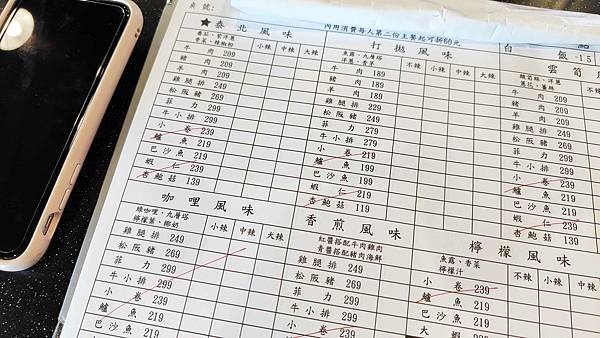 桌號:
內用消費每人第二份主餐起可折60元
★泰北風味
番茄、紫洋蔥
香菜、辣椒粉
小辣 中辣 大辣
牛肉 209
豬肉 209
羊肉 209
雞腿排 249
松阪豬 269
菲力 299
牛小排 299
小卷 239
鱸魚 219
巴沙魚 219
蝦仁 239
杏鮑菇 139
打拋風味
魚露、九層塔
洋蔥、香茅
不辣 小辣 中辣 大辣
牛肉 189
豬肉 189
羊肉 189
雞腿排 229
松阪豬 249
菲力 279
牛小排 279
小卷 219
鱸魚 199
巴沙魚 199
蝦仁 219
杏鮑菇 119
白飯 -15
雲筍風
酸筍絲、洋蔥
牛肉 209
豬肉 209
羊肉 209
雞腿排 249
松阪豬 269
菲力 299
牛小排 299
小卷 239
鱸魚 219
巴沙魚 219
蝦仁 239
杏鮑菇 139
咖哩風味
綠咖哩、九層塔
檸檬葉、椰奶
小辣 中辣 大辣
雞腿排 249
松阪豬 269
菲力 299
牛小排 299
小卷 239
鱸魚 219
巴沙魚 219
香煎風味
紅醬搭配牛肉雞肉
青醬搭配豬肉海鮮
雞腿排 249
松阪豬 269
菲力 299
牛小排 299
小卷 239
檸檬風味
魚露、香菜
檸檬汁
不辣 小辣 中辣
小卷 239
鱸魚 219
巴沙魚 219
大蝦 299